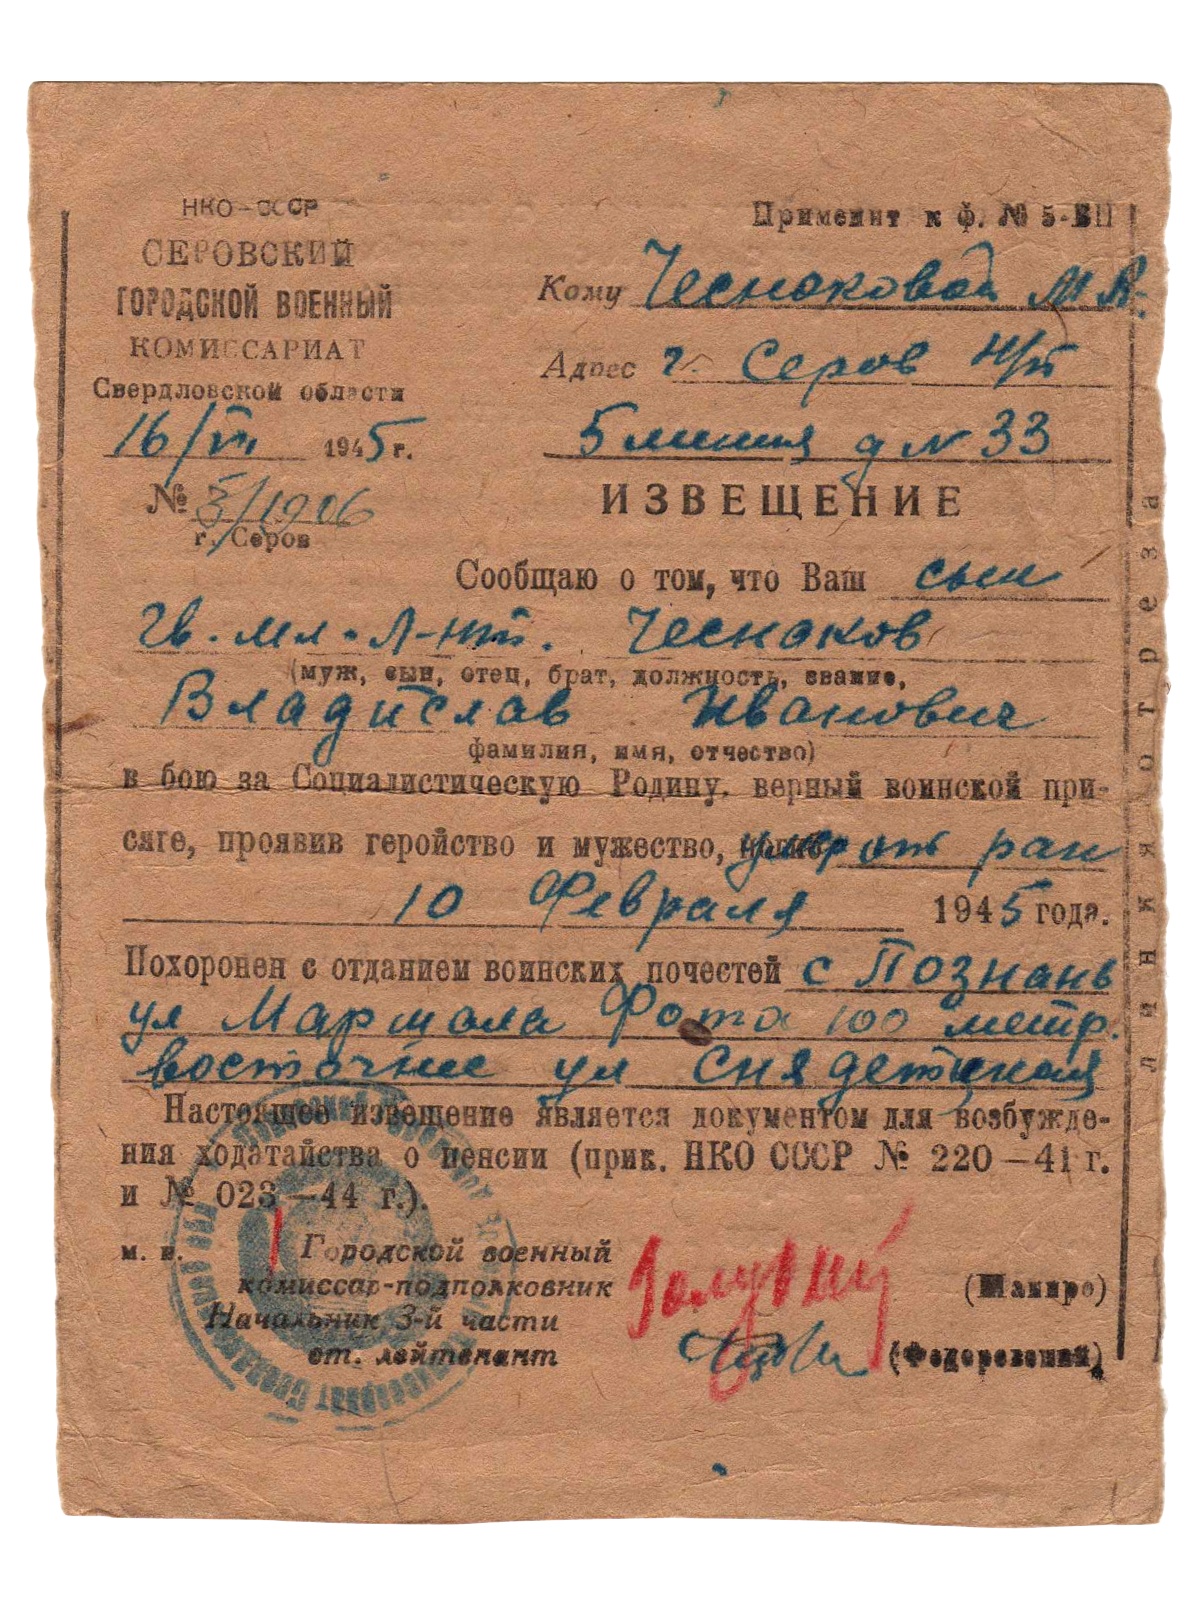 НКО-СССР
СЕРОВСКИЙ
ГОРОДСКОЙ ВОЕННЫЙ
КОМИССАРИАТ
Свердловской области
16/VI 1945 г.
№ 5/1906
г. Серов
Применит к ф. № 5-БП
Кому Чеснаковой М А.
Адрес г. Серов Н/т
5 линия д N 33
ИЗВЕЩЕНИЕ
Сообщаю о том, что Ваш сын
Гв. мл. Л-нт. Чеснаков
(муж, сын, отец, брат, должность, звание,
Владислав Иванович
фамилия, имя, отчество)
в бою за Социалистическую Родину, верный воинской при-
сяге, проявив геройство и мужество, умер от ран
10 Февраля 1945 года.
Похоронен с отданием воинских почестей с Познань
ул Маршала Фоша 100 метр.
восточнее ул Снядетцкая
Настоящее извещение является документом для возбужде-
ния ходатайства о пенсии (прик. НКО СССР № 220-41 г.
и № 023-44 г.).
м. п.
Городской военный
комиссар-подполковник
(Шапиро)
Начальник 3-й части
ст. лейтенант
линия отреза